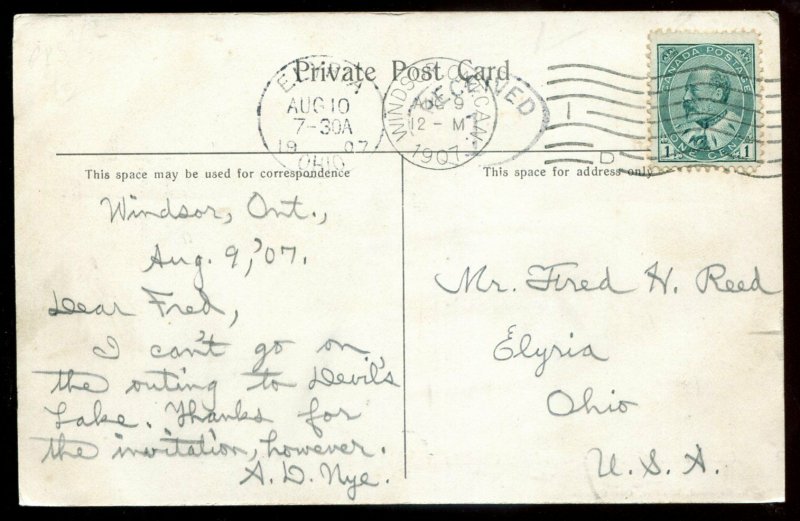 Private Post Card
ELYRIA
AUG 10
7-30A
19 07
OHIO
WINDSOR, CAN.
AUG 9
12 - M
1907
RECEIVED
I
D
CANADA POSTAGE
1 ONE CENT 1
This space may be used for correspondence
This space for address only
Windsor, Ont.,
Aug. 9, '07.
Dear Fred,
I can't go on
the outing to Devil's
Lake. Thanks for
the invitation, however.
A. D. Nye.
Mr. Fred H. Reed
Elyria
Ohio
U. S. A.